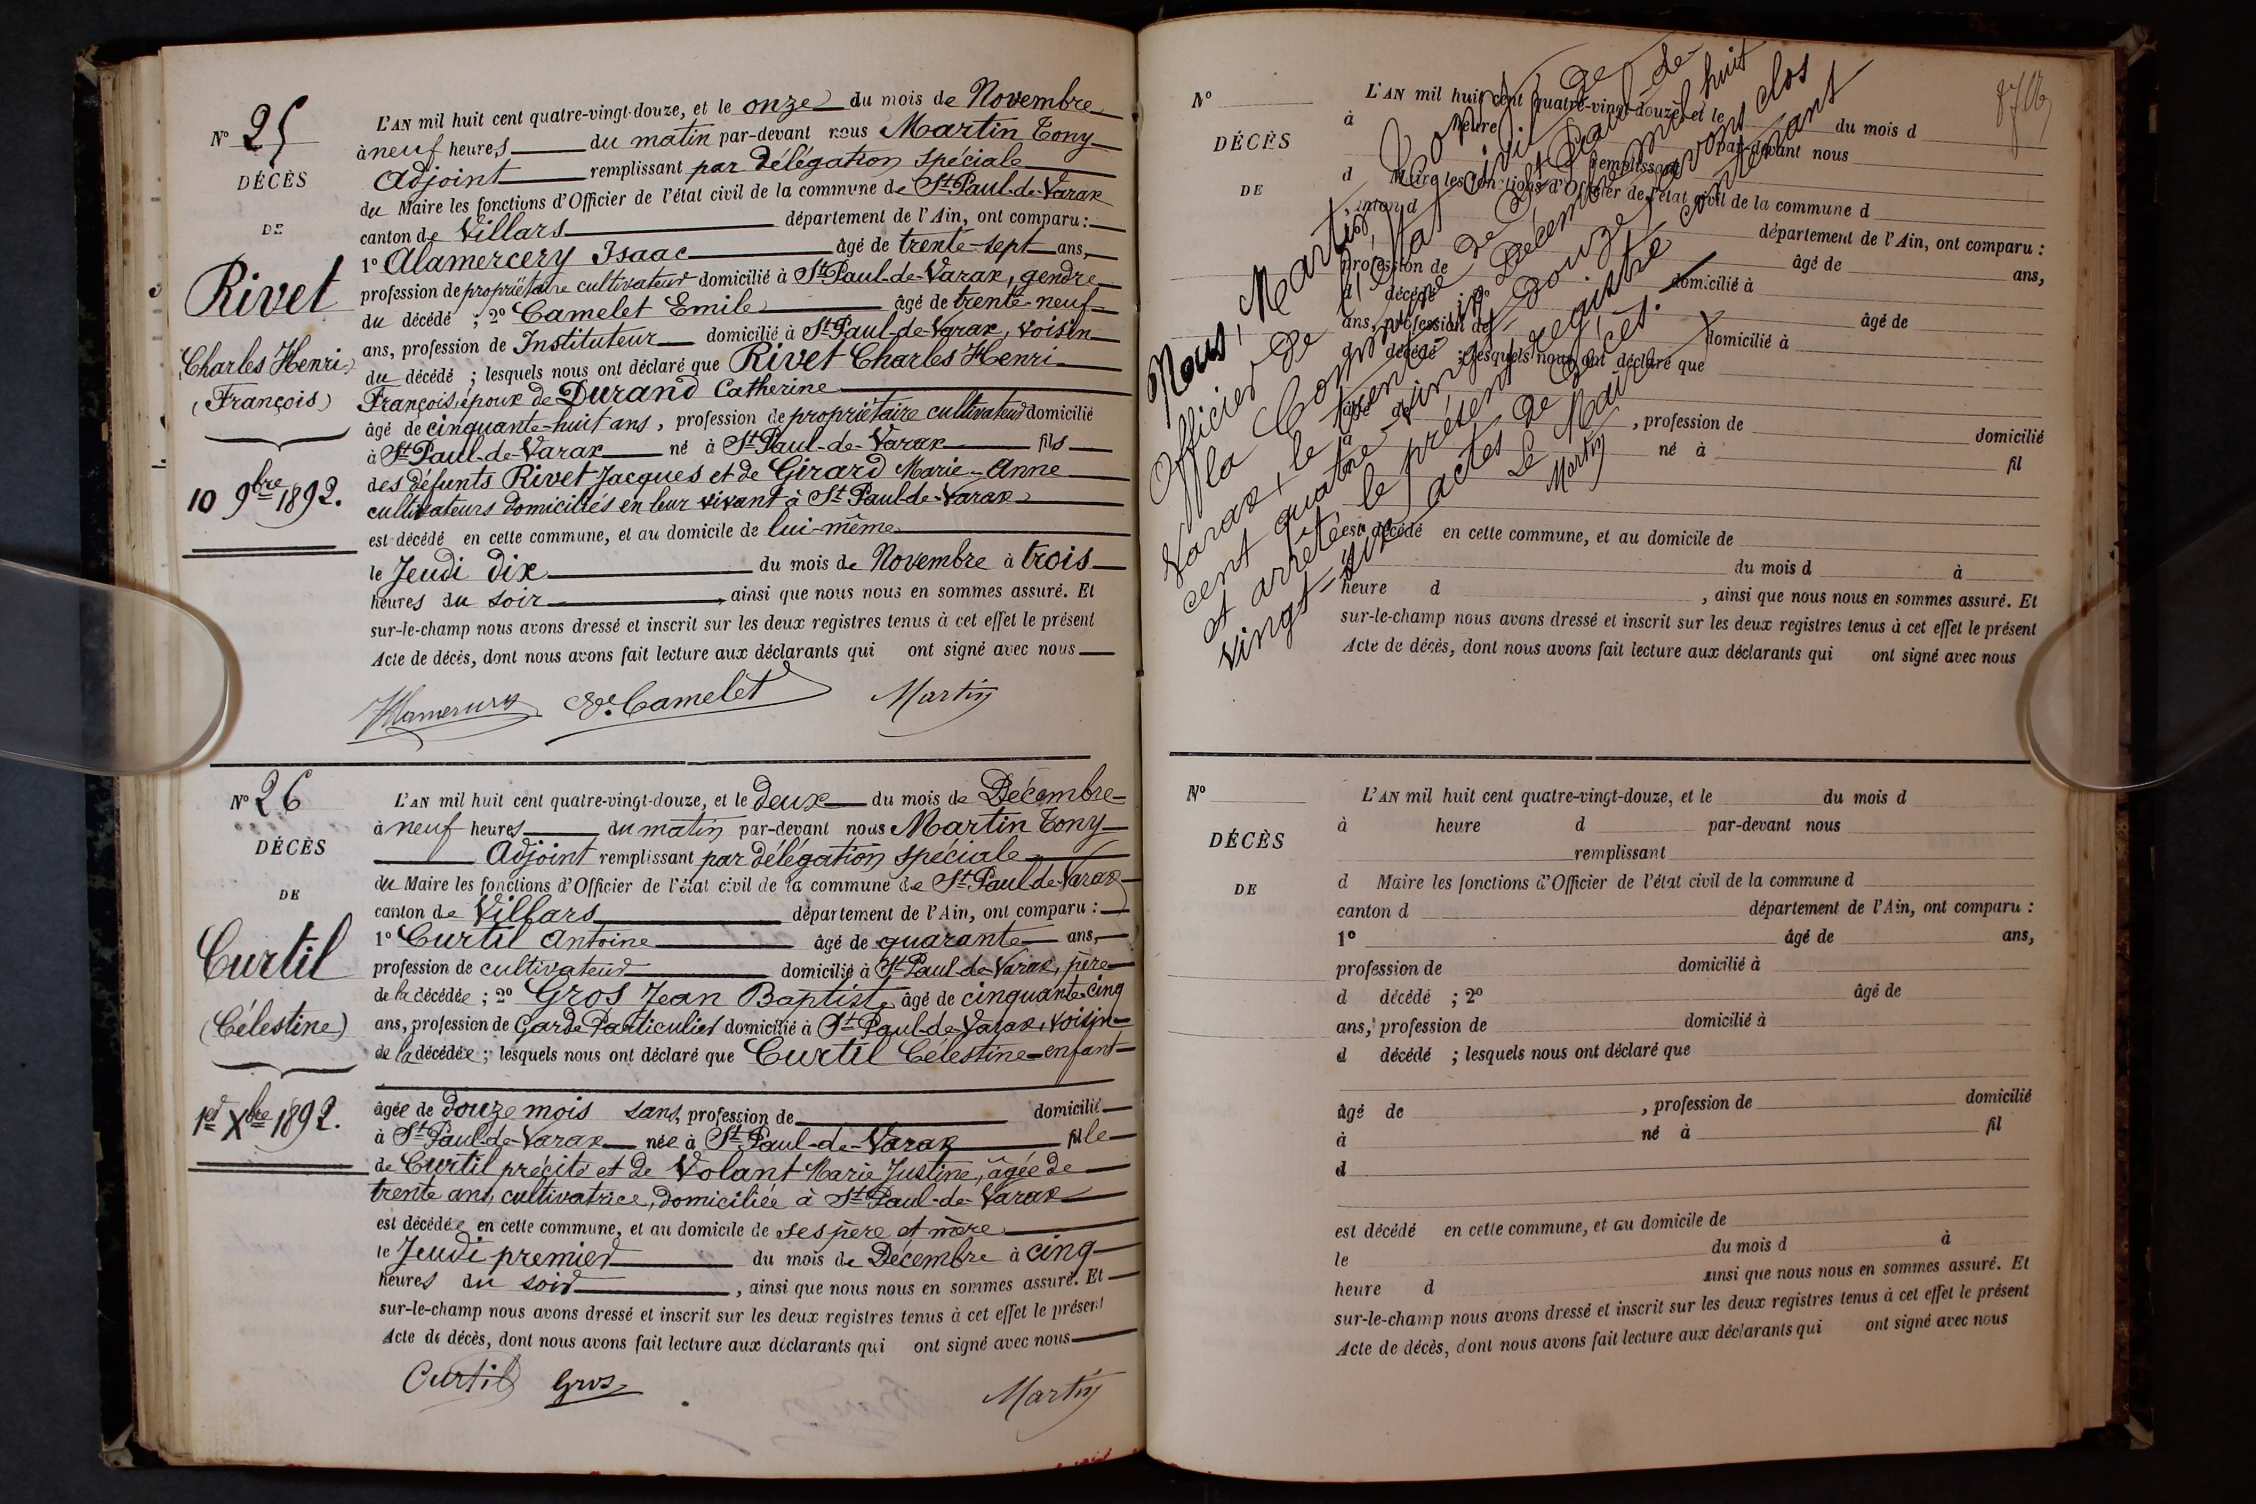 N° 25
DÉCÈS
DE
Rivet
(Charles Henri)
(François)
10 9bre 1892.
L'AN mil huit cent quatre-vingt-douze, et le onze du mois de Novembre
à neuf heures du matin par-devant nous Martin Tony
Adjoint remplissant par délégation spéciale
du Maire les fonctions d'Officier de l'état civil de la commune de St Paul-de-Varax
canton de Villars département de l'Ain, ont comparu :
1° Alamercery Isaac âgé de trente-sept ans,
profession de propriétaire cultivateur domicilié à St Paul-de-Varax, gendre
du décédé ; 2° Camelet Emile âgé de trente-neuf
ans, profession de Instituteur domicilié à St Paul-de-Varax, voisin
du décédé ; lesquels nous ont déclaré que Rivet Charles Henri
François, époux de Durand Catherine
âgé de cinquante-huit ans, profession de propriétaire cultivateur domicilié
à St Paul-de-Varax né à St Paul-de-Varax fils
des défunts Rivet Jacques et de Girard Marie-Anne
cultivateurs domiciliés en leur vivant à St Paul-de-Varax
est décédé en cette commune, et au domicile de lui-même
le Jeudi dix du mois de Novembre à trois
heures du soir, ainsi que nous nous en sommes assuré. Et
sur-le-champ nous avons dressé et inscrit sur les deux registres tenus à cet effet le présent
Acte de décès, dont nous avons fait lecture aux déclarants qui ont signé avec nous
Camelet Martin
N° 26
DÉCÈS
DE
Curtil
(Célestine)
1er Xbre 1892.
L'AN mil huit cent quatre-vingt-douze, et le deux du mois de Décembre
à neuf heures du matin par-devant nous Martin Tony
Adjoint remplissant par délégation spéciale
du Maire les fonctions d'Officier de l'état civil de la commune de St Paul-de-Varax
canton de Villars département de l'Ain, ont comparu :
1° Curtil Antoine âgé de quarante ans,
profession de cultivateur domicilié à St Paul-de-Varax, père
de la décédée ; 2° Gros Jean Baptiste âgé de cinquante-cinq
ans, profession de Garde Particulier domicilié à St Paul-de-Varax, voisin
de la décédée ; lesquels nous ont déclaré que Curtil Célestine enfant
âgée de douze mois sans, profession de domicilié
à St Paul-de-Varax née à St Paul-de-Varax fille
de Curtil précité et de Volant Marie Justine, âgée de
trente ans, cultivatrice, domiciliée à St Paul-de-Varax
est décédée en cette commune, et au domicile de ses père et mère
le Jeudi premier du mois de Décembre à cinq
heures du soir, ainsi que nous nous en sommes assuré. Et
sur-le-champ nous avons dressé et inscrit sur les deux registres tenus à cet effet le présent
Acte de décès, dont nous avons fait lecture aux déclarants qui ont signé avec nous
Curtil Gros Martin
N°
DÉCÈS
DE
L'AN mil huit cent quatre-vingt-douze, et le du mois d
à heure par-devant nous
remplissant
d Maire les fonctions d'Officier de l'état civil de la commune d
canton d département de l'Ain, ont comparu :
âgé de ans,
profession de domicilié à
d décédé ; 2° âgé de
ans, profession de domicilié à
d décédé ; lesquels nous ont déclaré que
âgé de , profession de domicilié
à né à fil
est décédé en cette commune, et au domicile de
le du mois d à
heure d , ainsi que nous nous en sommes assuré. Et
sur-le-champ nous avons dressé et inscrit sur les deux registres tenus à cet effet le présent
Acte de décès, dont nous avons fait lecture aux déclarants qui ont signé avec nous
Nous, Martin Tony
Officier de l'état civil de
la Commune de St Paul-de-
Varax, le trente un Décembre mil huit
cent quatre-vingt-douze, avons clos
et arrêté le présent registre comprenant
vingt-six actes de décès.
Le Maire
Martin
N°
DÉCÈS
DE
L'AN mil huit cent quatre-vingt-douze, et le du mois d
à heure d par-devant nous
remplissant
d Maire les fonctions d'Officier de l'état civil de la commune d
canton d département de l'Ain, ont comparu :
1° âgé de ans,
profession de domicilié à
d décédé ; 2° âgé de
ans, profession de domicilié à
d décédé ; lesquels nous ont déclaré que
âgé de , profession de domicilié
à né à fil
d
est décédé en cette commune, et au domicile de
le du mois d à
heure d ainsi que nous nous en sommes assuré. Et
sur-le-champ nous avons dressé et inscrit sur les deux registres tenus à cet effet le présent
Acte de décès, dont nous avons fait lecture aux déclarants qui ont signé avec nous